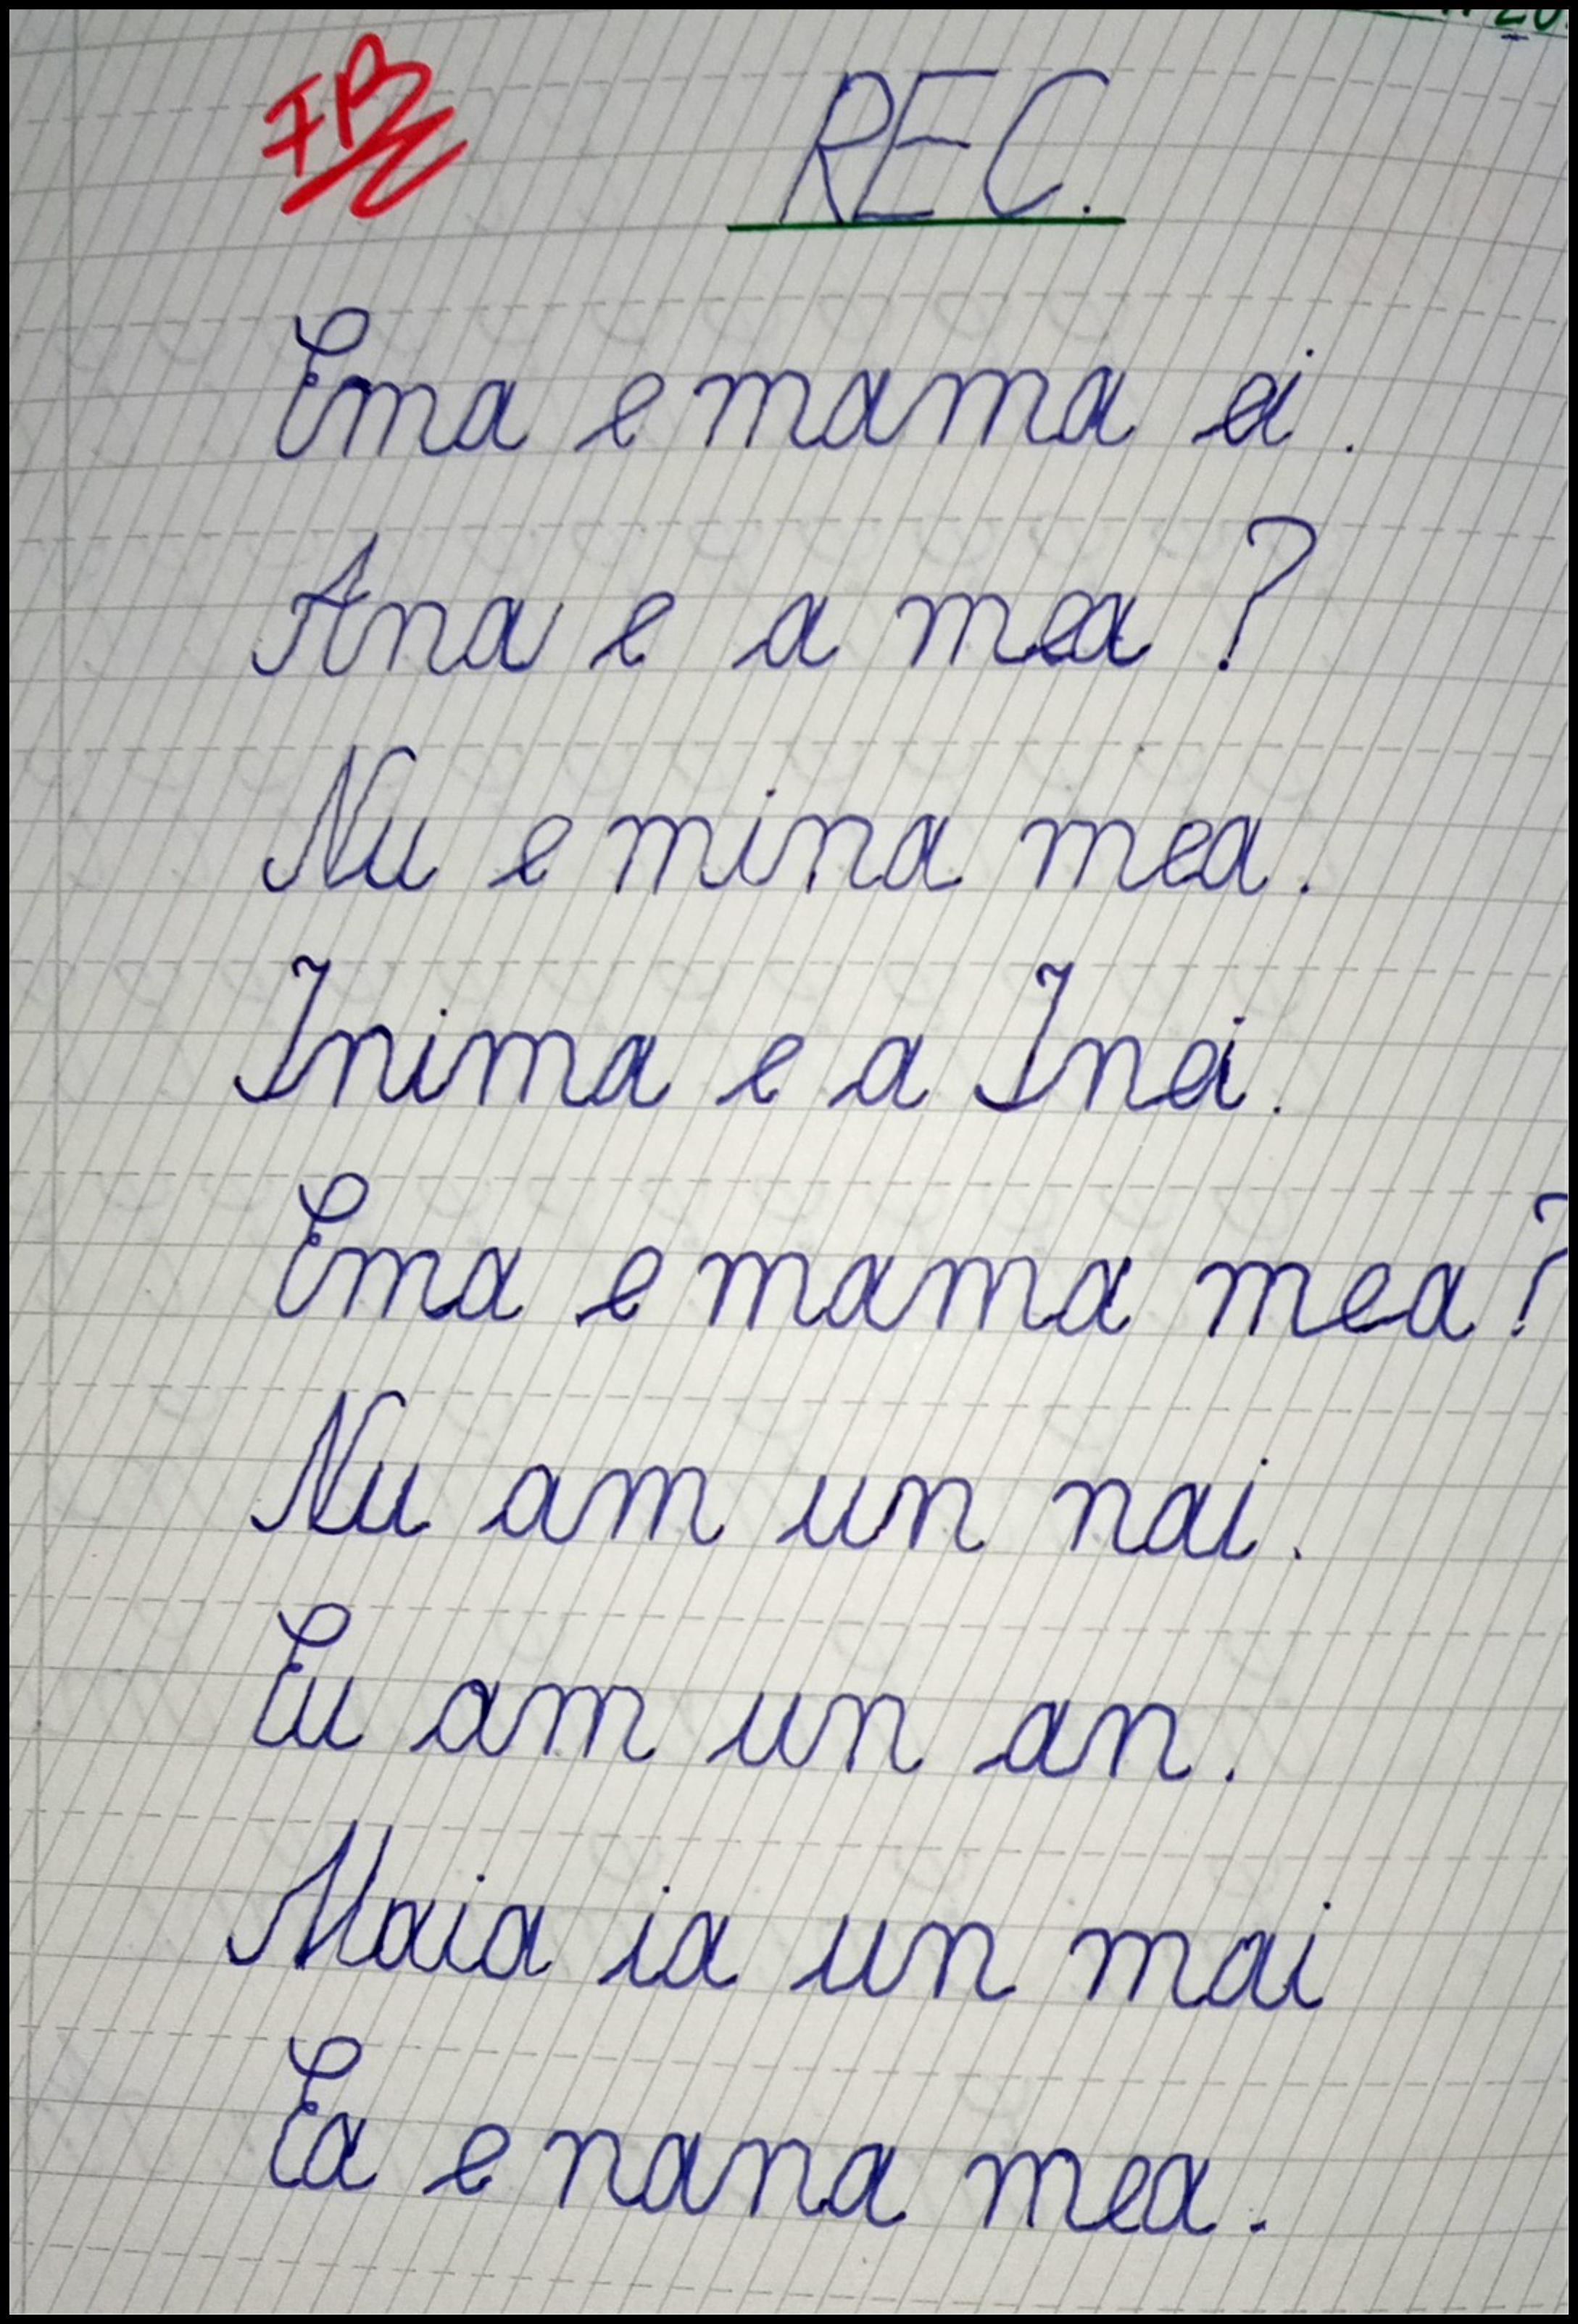 FB
REC.
Ema e mama ei.
Ana e a mea?
Nu e mina mea.
Inima e a Inei.
Ema e mama mea?
Nu am un nai.
Eu am un an.
Maia ia un mai
Ea e nana mea.